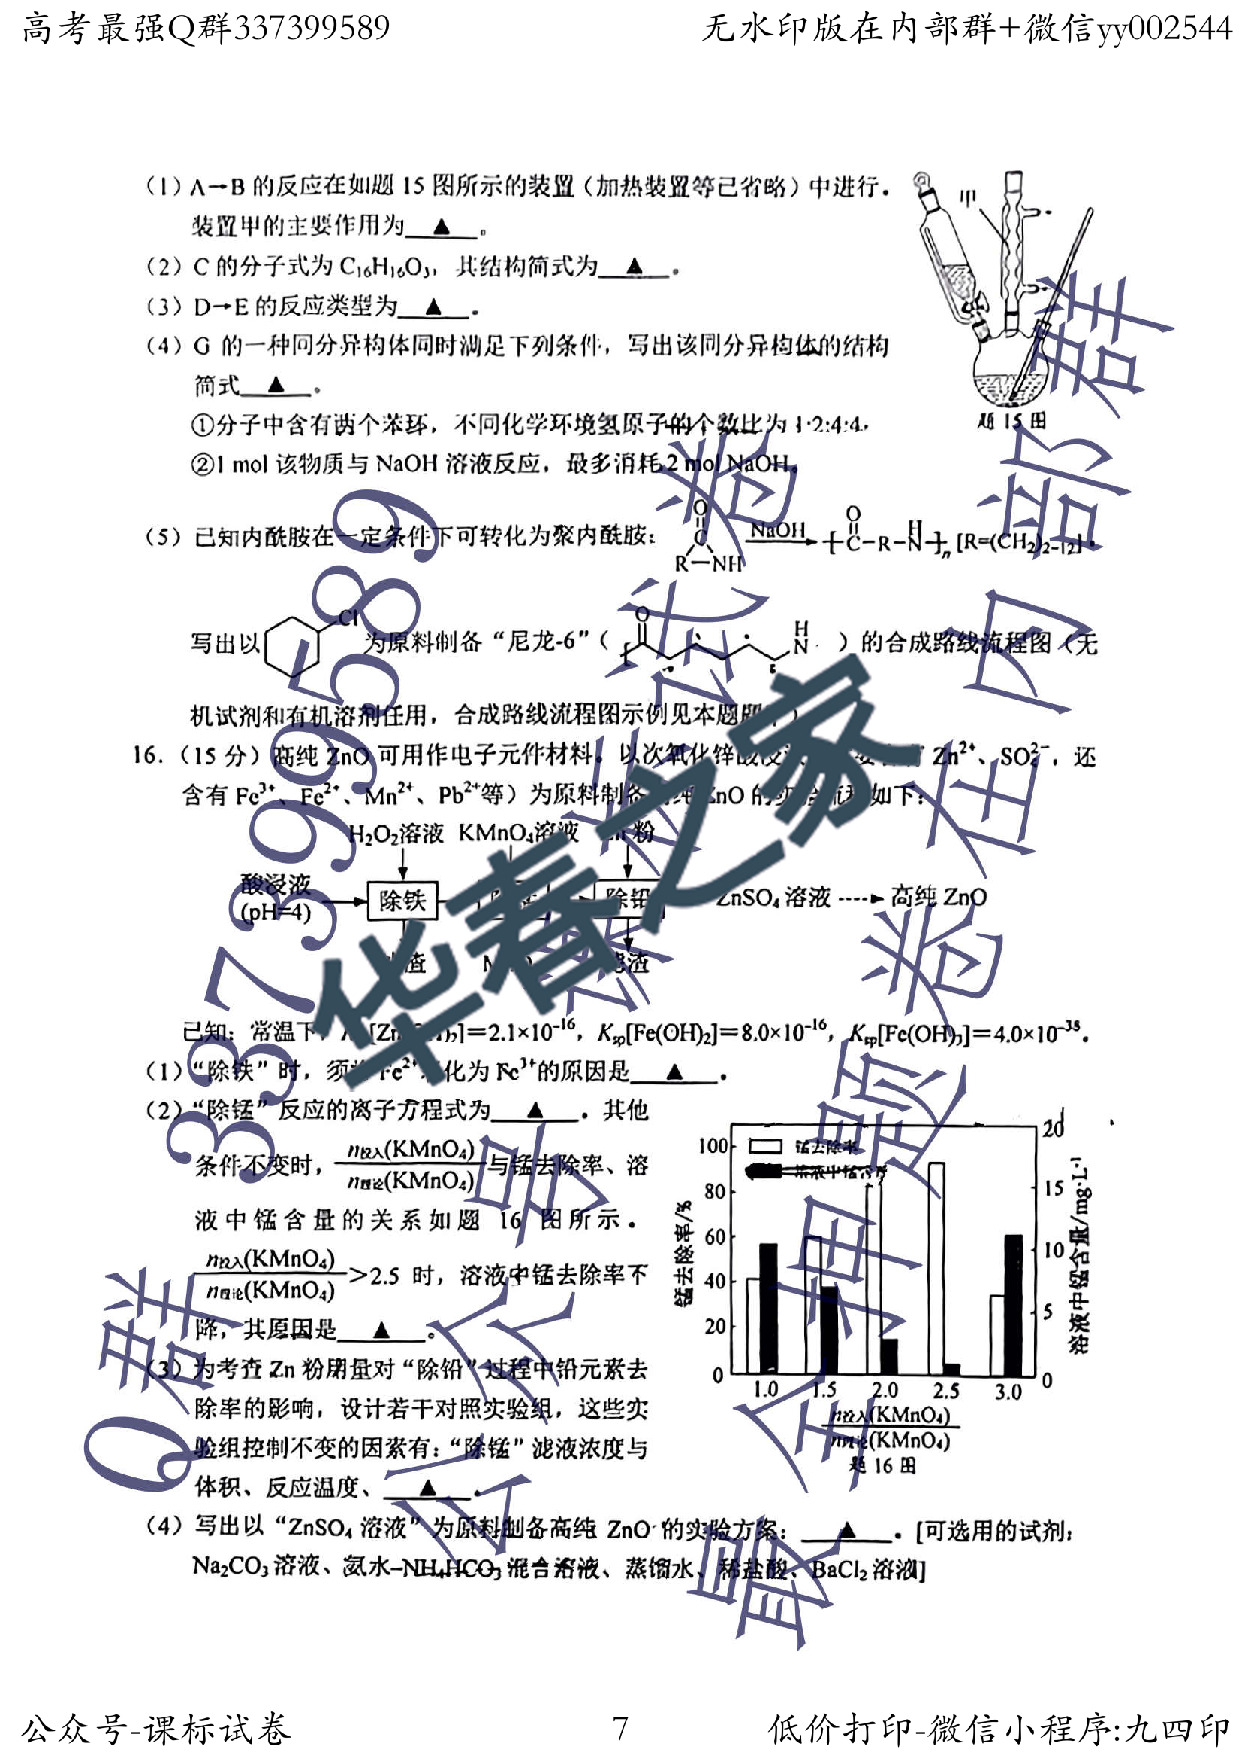 高考最强Q群337399589
无水印版在内部群+微信yy002544
(1) A→B 的反应在如题 15 图所示的装置（加热装置等已省略）中进行。
装置甲的主要作用为 ▲ 。
(2) C 的分子式为 C₁₆H₁₆O₃，其结构简式为 ▲ 。
(3) D→E 的反应类型为 ▲ 。
(4) G 的一种同分异构体同时满足下列条件，写出该同分异构体的结构
简式 ▲ 。
①分子中含有两个苯环，不同化学环境氢原子的个数比为 1:2:4:4，
②1 mol 该物质与 NaOH 溶液反应，最多消耗 2 mol NaOH。
甲
题 15 图
(5) 已知内酰胺在一定条件下可转化为聚内酰胺：
O C R—NH NaOH O C—R—N H n [R=(CH₂)₂₋₁₂]。
写出以 Cl 为原料制备“尼龙-6”（ O H N ）的合成路线流程图（无
机试剂和有机溶剂任用，合成路线流程图示例见本题题
16.（15 分）高纯 ZnO 可用作电子元件材料。以次氧化锌酸浸 Zn²⁺、SO₄²⁻，还
含有 Fe³⁺、Fe²⁺、Mn²⁺、Pb²⁺等）为原料制备 ZnO 的 如下：
H₂O₂溶液 KMnO₄溶液 粉
酸浸液
(pH=4)
除铁 除铅 ZnSO₄ 溶液 高纯 ZnO
渣 渣
已知：常温下， =2.1×10⁻¹⁶，Kₛₚ[Fe(OH)₂]=8.0×10⁻¹⁶，Kₛₚ[Fe(OH)₃]=4.0×10⁻³⁸。
(1)“除铁”时，须 Fe²⁺ 化为 Fe³⁺的原因是 ▲ 。
(2)“除锰”反应的离子方程式为 ▲ 。其他
条件不变时， n投入(KMnO₄) / n理论(KMnO₄) 与锰去除率、溶
液中锰含量的关系如题 16 图所示。
n投入(KMnO₄) / n理论(KMnO₄) >2.5 时，溶液中锰去除率不
降，其原因是 ▲ 。
(3) 为考查 Zn 粉用量对“除铅”过程中铅元素去
除率的影响，设计若干对照实验组，这些实
验组控制不变的因素有：“除锰”滤液浓度与
体积、反应温度、 ▲ 。
锰去除率/%
100
80
60
40
20
0
锰去除率
溶液中锰含量
1.0 1.5 2.0 2.5 3.0
20
15
10
5
0
溶液中锰含量/mg·L⁻¹
n投入(KMnO₄)
n理论(KMnO₄)
题 16 图
(4) 写出以“ZnSO₄ 溶液”为原料制备高纯 ZnO 的实验方案： ▲ 。[可选用的试剂：
Na₂CO₃ 溶液、氨水-NH₄HCO₃ 混合溶液、蒸馏水、稀盐酸、BaCl₂ 溶液]
华春之家
Q群 337399589
公众号
最全押题卷在内部群
公众号-课标试卷
7
低价打印-微信小程序:九四印